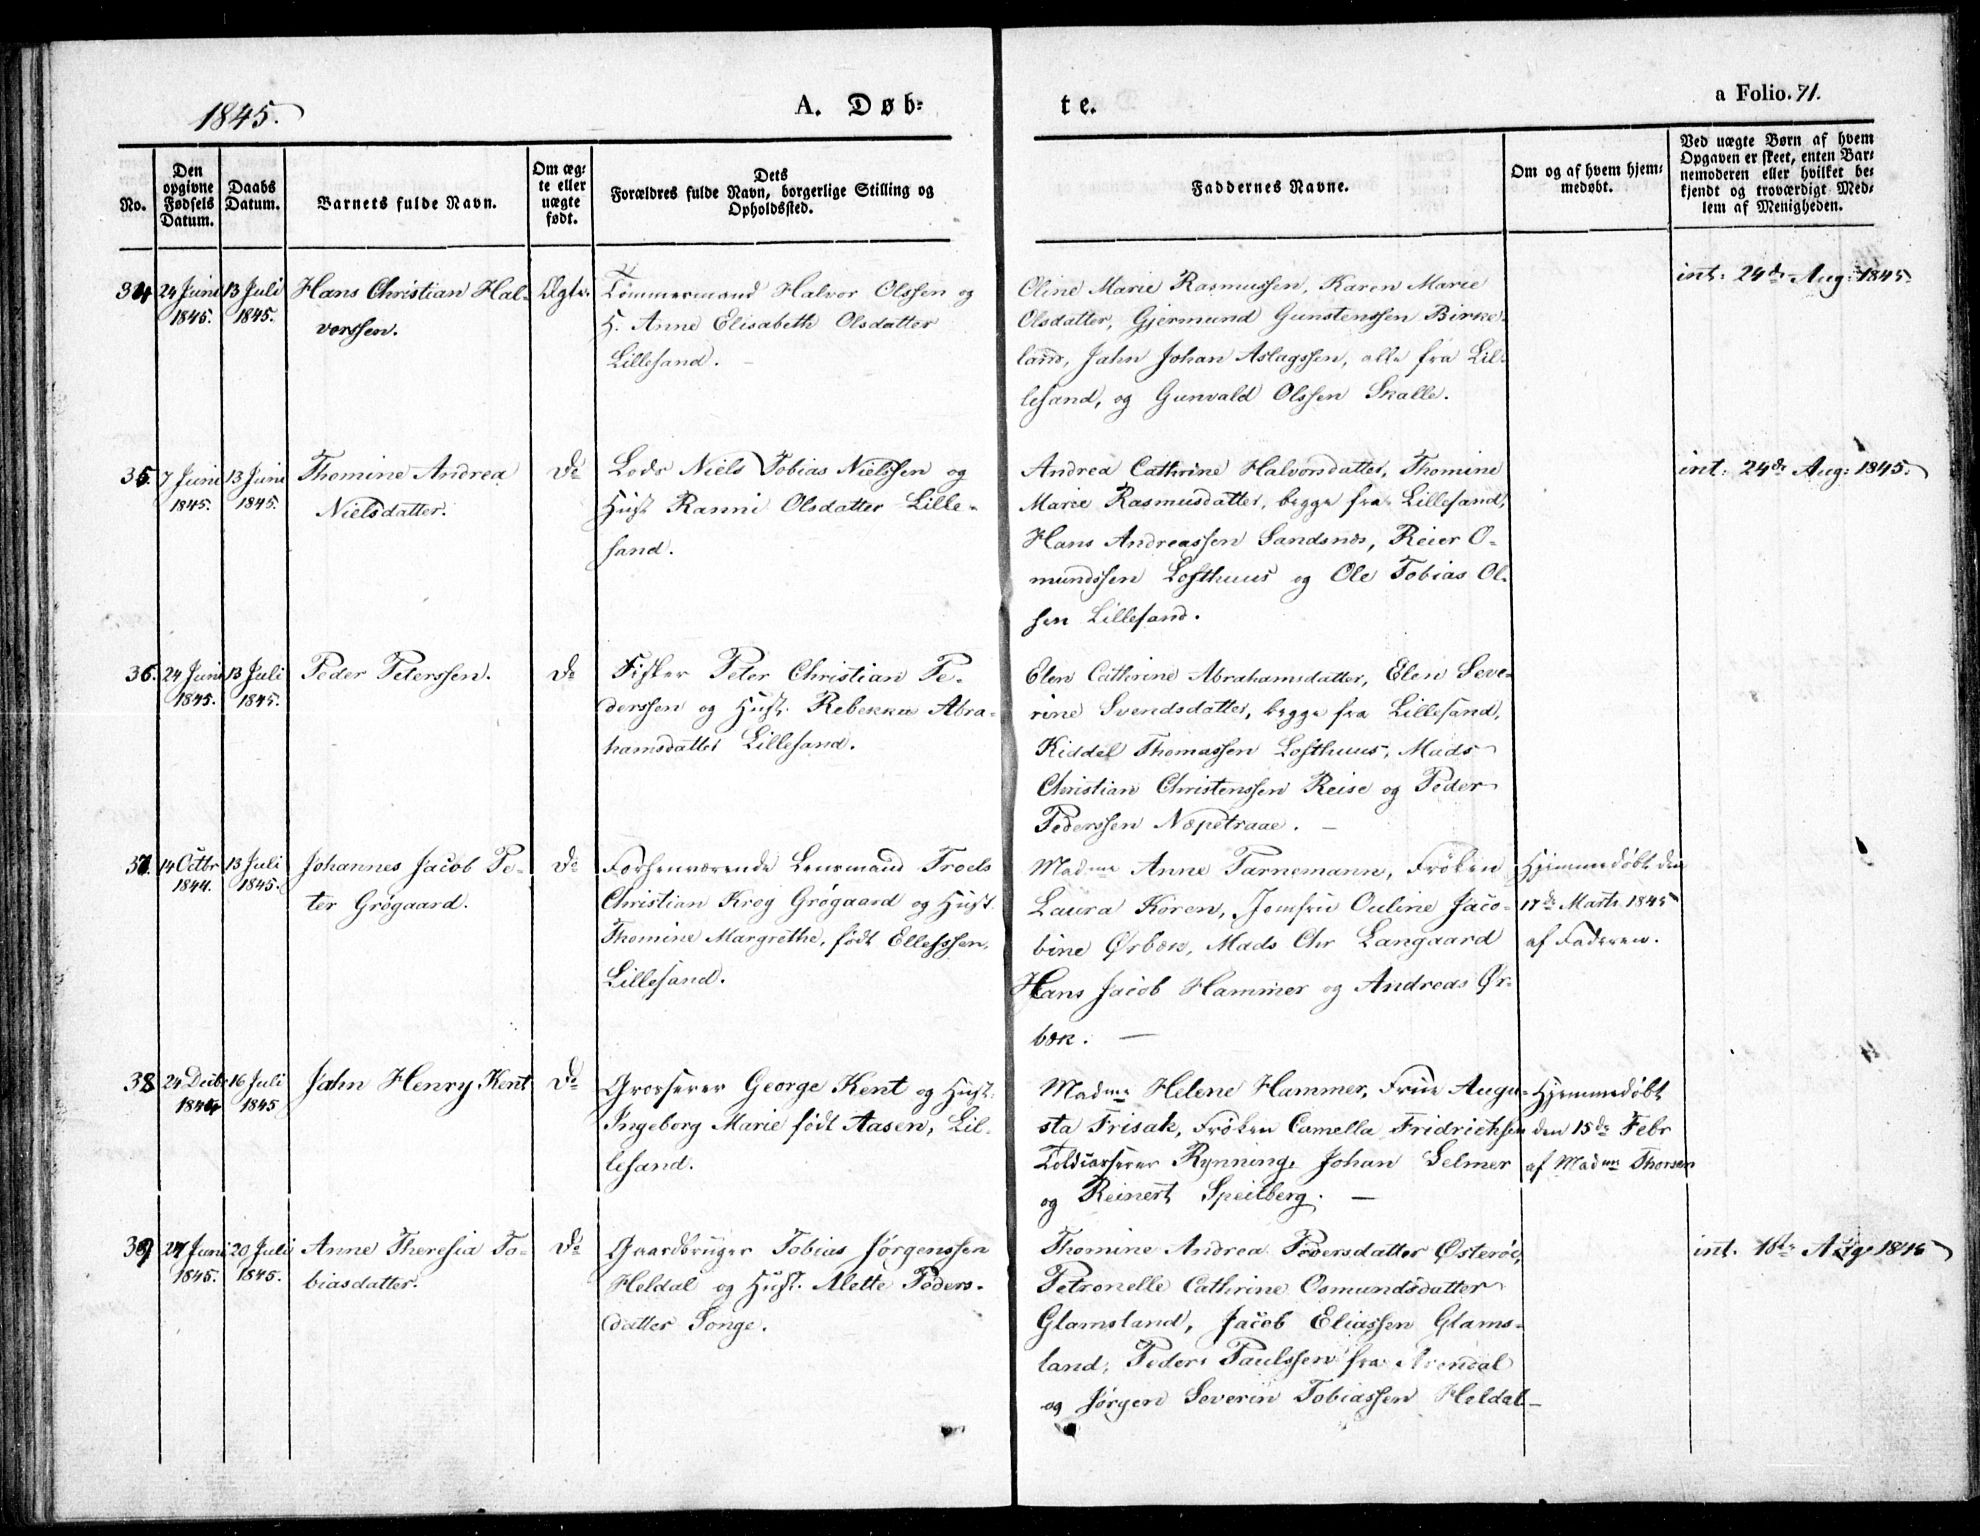 1845.
A. Døb-
te.
a Folio. 71.
No.
Den
opgivne
Fødsels
Datum.
Daabs
Datum.
Barnets fulde Navn.
Om æg-
te eller
uægte
født.
Dets
Forældres fulde Navn, borgerlige Stilling og
Opholdssted.
Faddernes Navne.
Om og af hvem hjem-
medøbt.
Ved uægte Børn af hvem
Opgaven er skeet, enten Bar-
nemoderen eller hvilket be-
kjendt og troværdigt Med-
lem af Menigheden.
34 24 Juni 1845. 13 Juli 1845.
Hans Christian Hal-
vorssen.
Ægte.
Tømmermand Halvor Olssen og
H. Anne Elisabeth Olsdatter
Lillesand. —
Oline Marie Rasmussen, Karen Marie
Olsdatter, Gjermund Gunstenssen Birke-
land, Jahn Johan Aslagssen, alle fra Lil-
lesand, og Gunvald Olssen Skalle.
int: 24de Aug: 1845.
35. 7 Juni 1845. 13 Juni 1845.
Thomine Andrea
Nielsdatter.
Do
Lods Niels Tobias Nielssen og
Hust Ranni Olsdatter Lille-
sand.
Andrea Cathrine Halvorsdatter, Thomine
Marie Rasmusdatter, begge fra Lillesand,
Hans Andreassen Sandsnes, Reier O-
mundssen Lofthuus og Ole Tobias Ol-
sen Lillesand.
int: 24de Aug: 1845.
36. 24 Juni 1845. 13 Juli 1845.
Peder Peterssen.
Do
Fisker Peter Christian Pe-
derssen og Hust. Rebekka Abra-
hamsdatter Lillesand.
Elen Cathrine Abrahamsdatter, Elen Seve-
rine Svendsdatter, begge fra Lillesand,
Kiddel Thomassen Lofthuus, Mads
Christian Christenssen Reise og Peder
Pederssen Næpetraae. —
37. 14 Octbr 1844. 13 Juli 1845.
Johannes Jacob Pe-
ter Grøgaard.
Do
Forhenværende Lensmand Troels
Christian Krog Grøgaard og Hust
Thomine Margrethe, født Ellefssen,
Lillesand.
Madme Anne Tarnemann, Frøken
Laura Koren, Jomfru Ouline Jaco-
bine Ørbæn, Mads Chr Langaard
Hans Jacob Hammer og Andreas Ør-
bæk. —
Hjemmedøbt den
17de Marts 1845
af Faderen.
38 24 Decbr 1844 16 Juli 1845
Jahn Henry Kent
Do
Grosserer George Kent og Hust.
Ingeborg Marie født Aasen, Lil-
lesand.
Madme Helene Hammer, Frue Augu-
sta Frisak, Frøken Camella Fridrichsen
Toldcasserer Rynning, Johan Selmer
og Reinert Speilberg. —
Hjemmedøbt
den 15de Febr
af Madme Thorsen
39 27 Juni 1845. 20 Juli 1845.
Anne Theresia To-
biasdatter.
Do
Gaardbruger Tobias Jørgenssen
Heldal og Hust. Alette Peders-
datter Songe.
Thomine Andrea Pedersdatter Østerøe,
Petronelle Cathrine Osmundsdatter
Glamsland, Jacob Eliassen Glams-
land, Peder Paulssen fra Arendal
og Jørgen Severin Tobiassen Heldal—
int. 18de Aug 1845